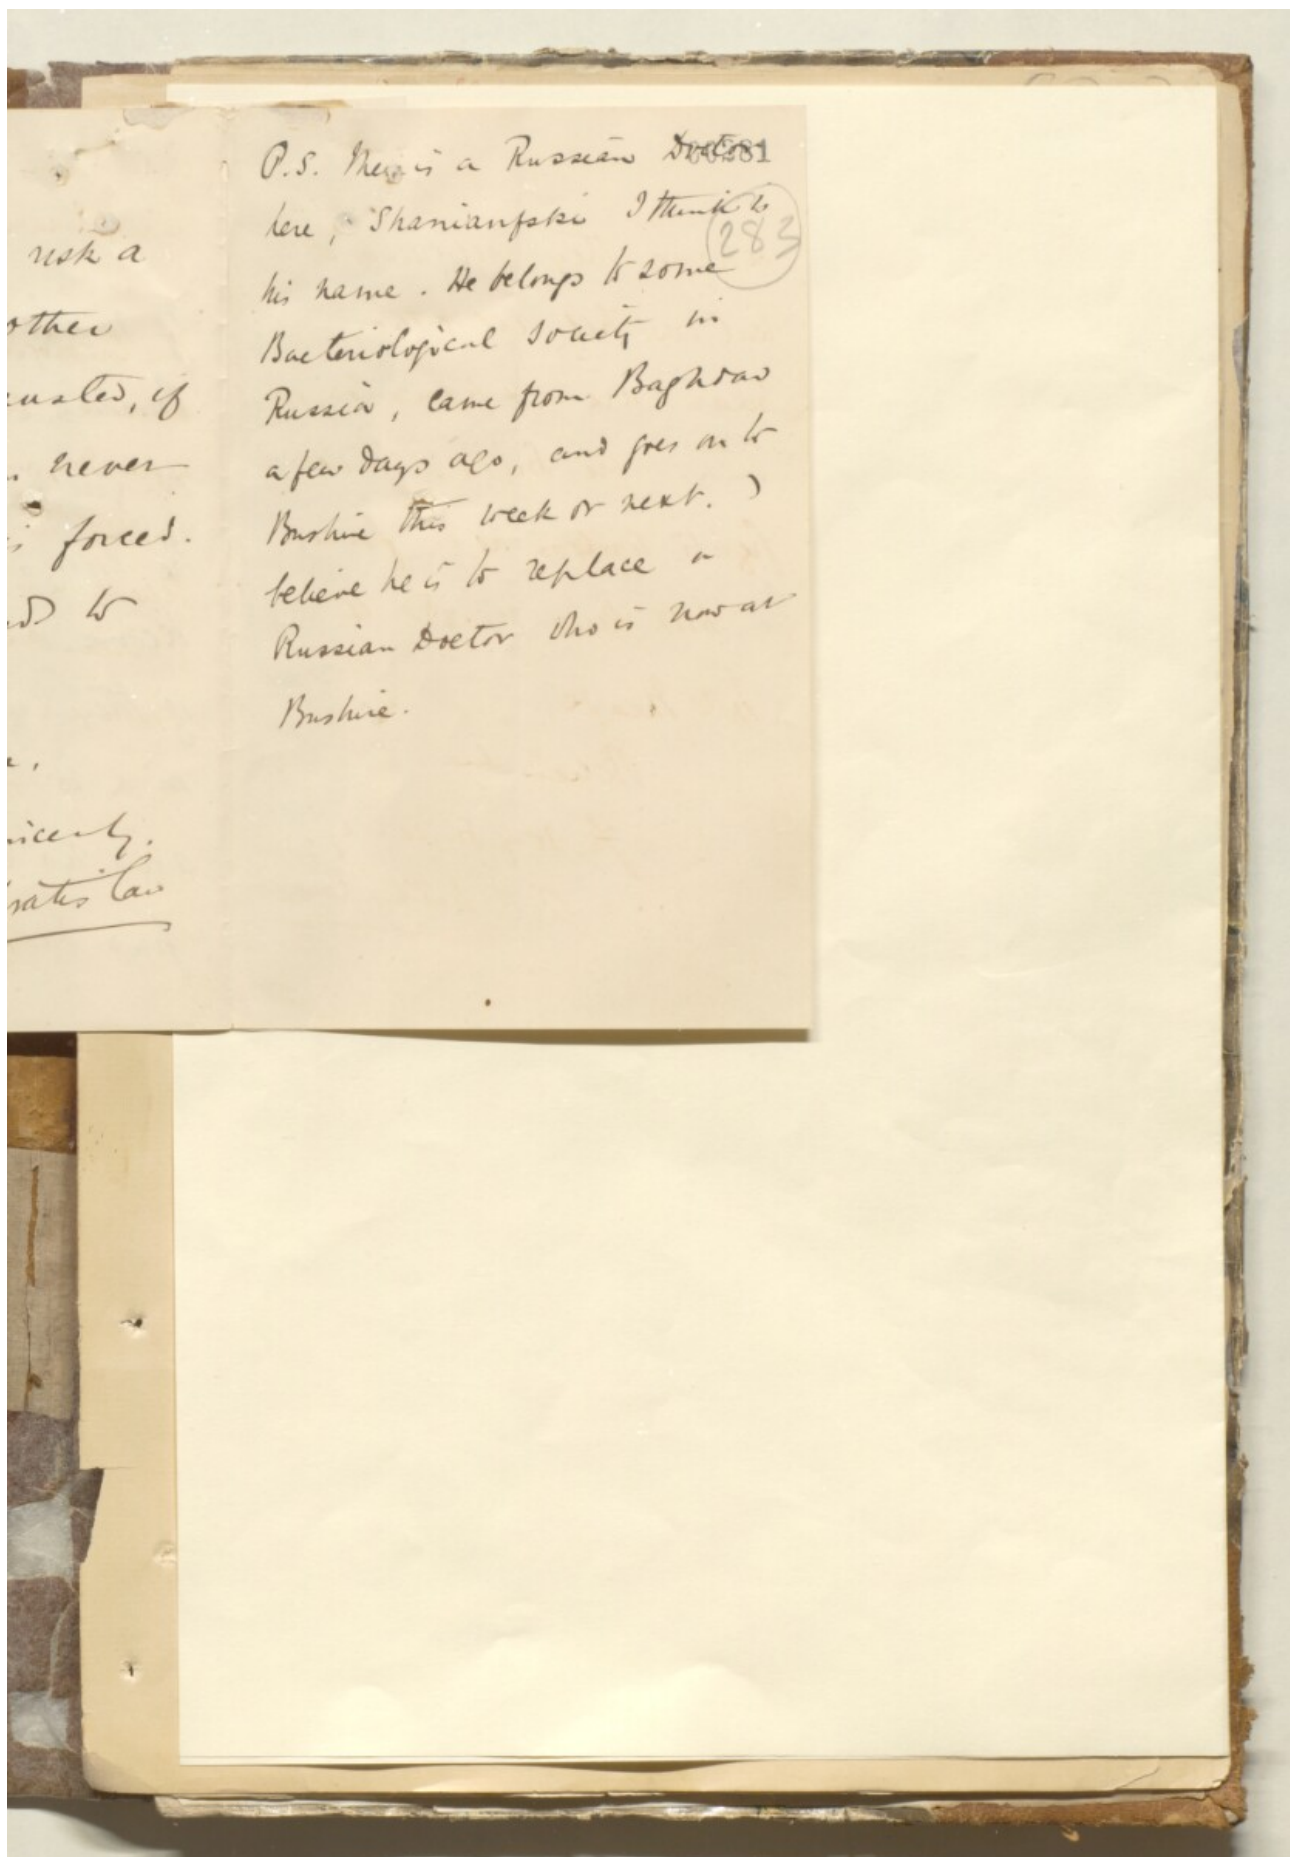 risk a
other
usted, if
never
forced.
to
P.S. There is a Russian Doctor
00281
here, Shanianfski I think is
283
his name. He belongs to some
Bacteriological Society in
Russia, came from Baghdad
a few days ago, and goes on to
Bushire this week or next. I
believe he is to replace a
Russian Doctor who is now at
Bushire.